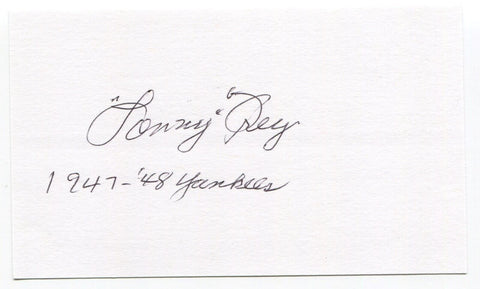 "Lonny" Frey
1947-'48 Yankees